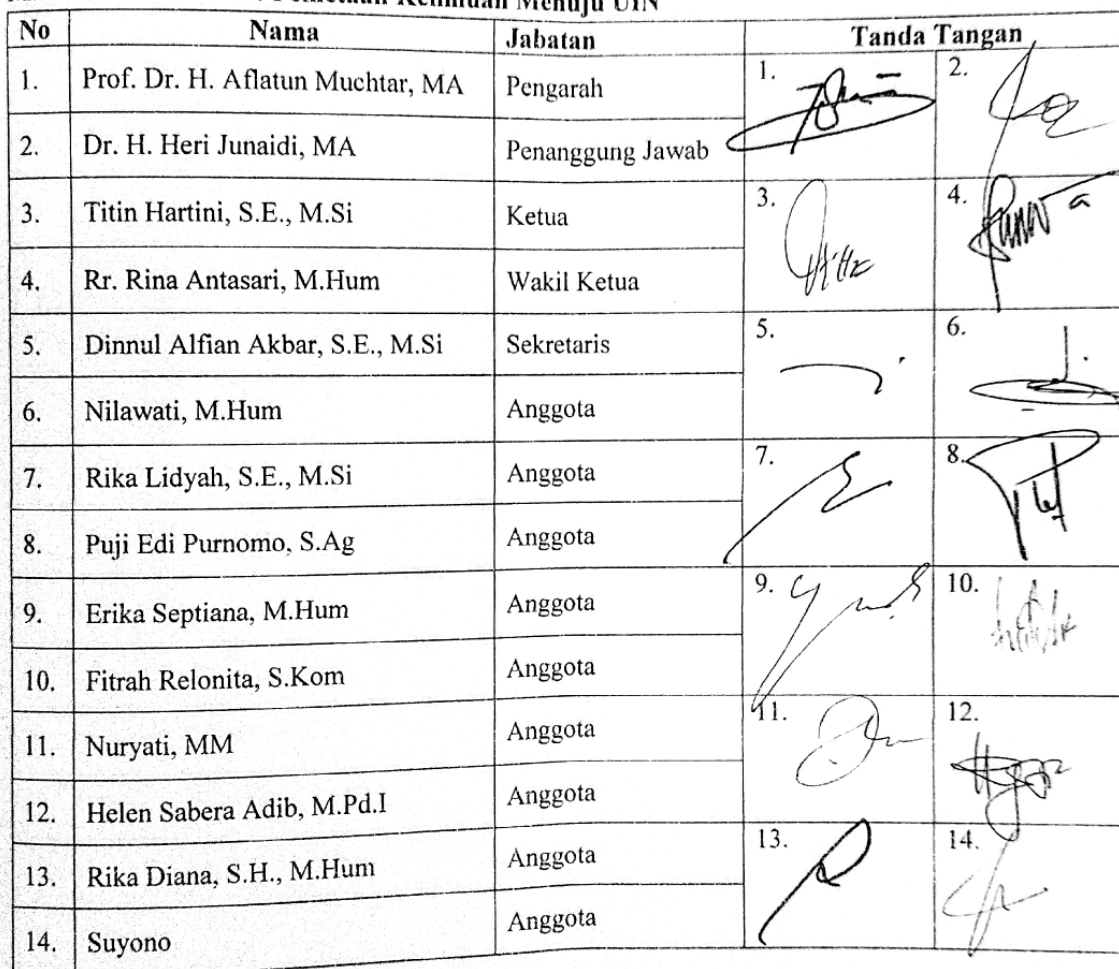 Pemetaan Keilmuan Menuju UIN
No Nama Jabatan Tanda Tangan
1. Prof. Dr. H. Aflatun Muchtar, MA Pengarah 1. 2.
2. Dr. H. Heri Junaidi, MA Penanggung Jawab
3. Titin Hartini, S.E., M.Si Ketua 3. 4.
4. Rr. Rina Antasari, M.Hum Wakil Ketua
5. Dinnul Alfian Akbar, S.E., M.Si Sekretaris 5. 6.
6. Nilawati, M.Hum Anggota
7. Rika Lidyah, S.E., M.Si Anggota 7. 8.
8. Puji Edi Purnomo, S.Ag Anggota
9. Erika Septiana, M.Hum Anggota 9. 10.
10. Fitrah Relonita, S.Kom Anggota
11. Nuryati, MM Anggota 11. 12.
12. Helen Sabera Adib, M.Pd.I Anggota
13. Rika Diana, S.H., M.Hum Anggota 13. 14.
14. Suyono Anggota